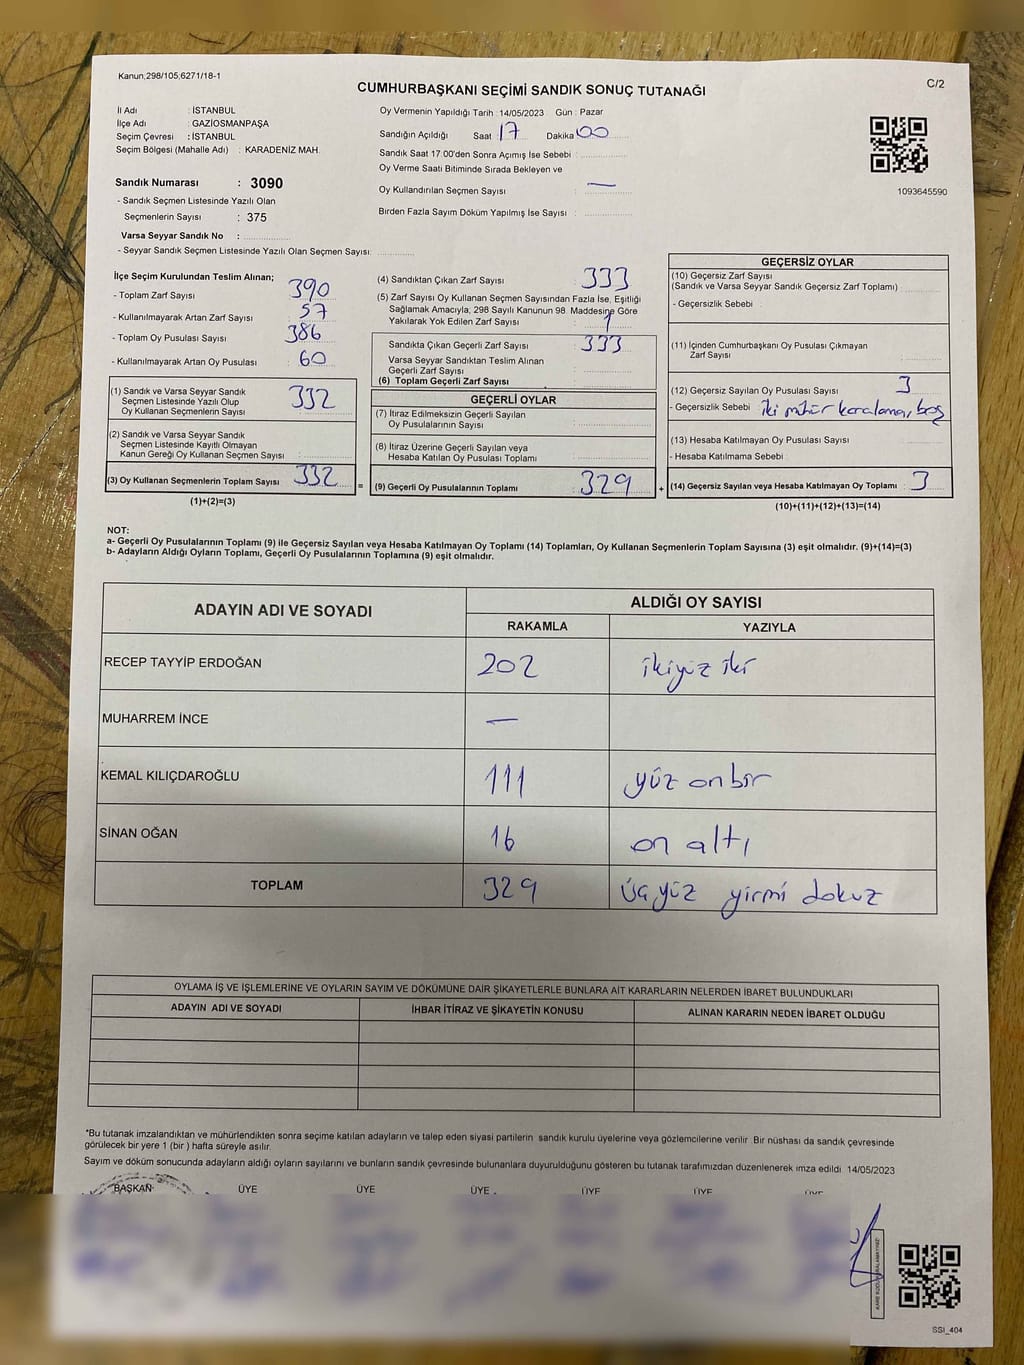 Kanun;298/105;6271/18-1
CUMHURBAŞKANI SEÇİMİ SANDIK SONUÇ TUTANAĞI
C/2
İl Adı : İSTANBUL
İlçe Adı : GAZİOSMANPAŞA
Seçim Çevresi : İSTANBUL
Seçim Bölgesi (Mahalle Adı) : KARADENİZ MAH.
Oy Vermenin Yapıldığı Tarih : 14/05/2023 Gün : Pazar
Sandığın Açıldığı Saat 17 Dakika 00
Sandık Saat 17.00'den Sonra Açımış İse Sebebi :
Oy Verme Saati Bitiminde Sırada Bekleyen ve
Oy Kullandırılan Seçmen Sayısı : —
Birden Fazla Sayım Döküm Yapılmış İse Sayısı :
1093645590
Sandık Numarası : 3090
- Sandık Seçmen Listesinde Yazılı Olan
Seçmenlerin Sayısı : 375
Varsa Seyyar Sandık No :
- Seyyar Sandık Seçmen Listesinde Yazılı Olan Seçmen Sayısı:
İlçe Seçim Kurulundan Teslim Alınan;
- Toplam Zarf Sayısı : 390
- Kullanılmayarak Artan Zarf Sayısı : 57
- Toplam Oy Pusulası Sayısı : 386
- Kullanılmayarak Artan Oy Pusulası : 60
(1) Sandık ve Varsa Seyyar Sandık
Seçmen Listesinde Yazılı Olup
Oy Kullanan Seçmenlerin Sayısı : 332
(2) Sandık ve Varsa Seyyar Sandık
Seçmen Listesinde Kayıtlı Olmayan
Kanun Gereği Oy Kullanan Seçmen Sayısı :
(3) Oy Kullanan Seçmenlerin Toplam Sayısı : 332
(1)+(2)=(3)
=
(4) Sandıktan Çıkan Zarf Sayısı : 333
(5) Zarf Sayısı Oy Kullanan Seçmen Sayısından Fazla İse, Eşitliği
Sağlamak Amacıyla; 298 Sayılı Kanunun 98. Maddesine Göre
Yakılarak Yok Edilen Zarf Sayısı : 1
Sandıkta Çıkan Geçerli Zarf Sayısı : 333
Varsa Seyyar Sandıktan Teslim Alınan
Geçerli Zarf Sayısı :
(6) Toplam Geçerli Zarf Sayısı :
GEÇERLİ OYLAR
(7) İtiraz Edilmeksizin Geçerli Sayılan
Oy Pusulalarının Sayısı :
(8) İtiraz Üzerine Geçerli Sayılan veya
Hesaba Katılan Oy Pusulası Toplamı :
(9) Geçerli Oy Pusulalarının Toplamı : 329
+
GEÇERSİZ OYLAR
(10) Geçersiz Zarf Sayısı
(Sandık ve Varsa Seyyar Sandık Geçersiz Zarf Toplamı) :
- Geçersizlik Sebebi :
(11) İçinden Cumhurbaşkanı Oy Pusulası Çıkmayan
Zarf Sayısı :
(12) Geçersiz Sayılan Oy Pusulası Sayısı : 3
- Geçersizlik Sebebi : iki mühür karalama, boş
(13) Hesaba Katılmayan Oy Pusulası Sayısı :
- Hesaba Katılmama Sebebi :
(14) Geçersiz Sayılan veya Hesaba Katılmayan Oy Toplamı : 3
(10)+(11)+(12)+(13)=(14)
NOT:
a- Geçerli Oy Pusulalarının Toplamı (9) ile Geçersiz Sayılan veya Hesaba Katılmayan Oy Toplamı (14) Toplamları, Oy Kullanan Seçmenlerin Toplam Sayısına (3) eşit olmalıdır. (9)+(14)=(3)
b- Adayların Aldığı Oyların Toplamı, Geçerli Oy Pusulalarının Toplamına (9) eşit olmalıdır.
ADAYIN ADI VE SOYADI
ALDIĞI OY SAYISI
RAKAMLA YAZIYLA
RECEP TAYYİP ERDOĞAN 202 ikiyüz iki
MUHARREM İNCE —
KEMAL KILIÇDAROĞLU 111 yüz onbir
SİNAN OĞAN 16 on altı
TOPLAM 329 üçyüz yirmi dokuz
OYLAMA İŞ VE İŞLEMLERİNE VE OYLARIN SAYIM VE DÖKÜMÜNE DAİR ŞİKAYETLERLE BUNLARA AİT KARARLARIN NELERDEN İBARET BULUNDUKLARI
ADAYIN ADI VE SOYADI İHBAR İTİRAZ VE ŞİKAYETİN KONUSU ALINAN KARARIN NEDEN İBARET OLDUĞU
*Bu tutanak imzalandıktan ve mühürlendikten sonra seçime katılan adayların ve talep eden siyasi partilerin sandık kurulu üyelerine veya gözlemcilerine verilir. Bir nüshası da sandık çevresinde
görülecek bir yere 1 (bir) hafta süreyle asılır.
Sayım ve döküm sonucunda adayların aldığı oyların sayılarını ve bunların sandık çevresinde bulunanlara duyurulduğunu gösteren bu tutanak tarafımızdan düzenlenerek imza edildi 14/05/2023
BAŞKAN ÜYE ÜYE ÜYE ÜYE ÜYE ÜYE
SSI_404